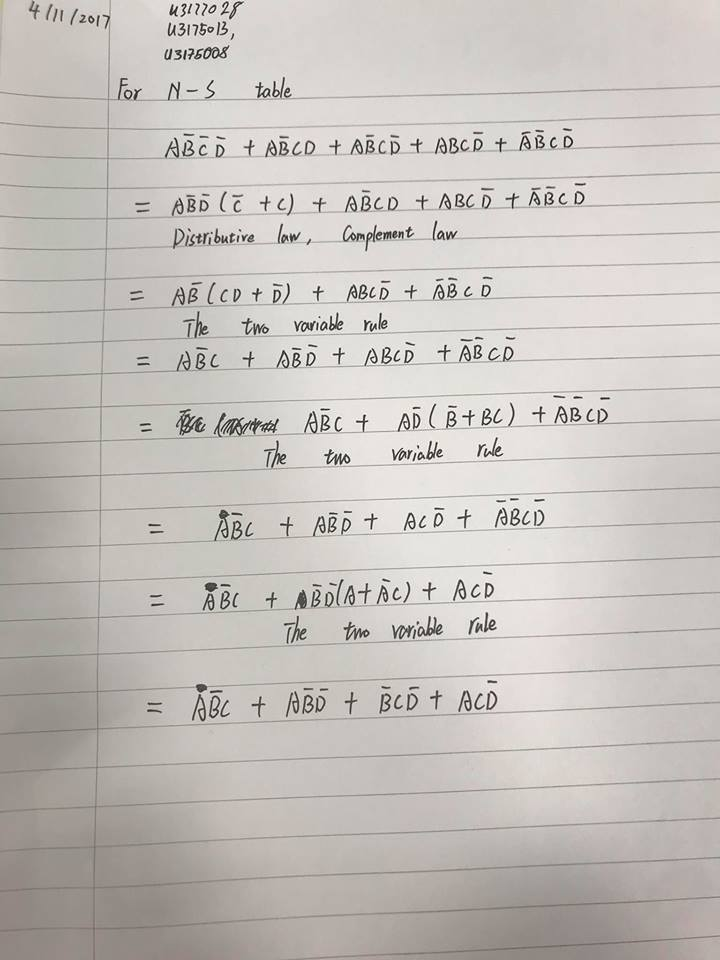 4/11/2017
U3177028
U3175013,
U3175008
For N-S table
AB̅C̅D̅ + AB̅CD + AB̅CD̅ + ABCD̅ + A̅B̅CD̅
= AB̅D̅(C̅ + C) + AB̅CD + ABCD̅ + A̅B̅CD̅
Distributive law, Complement law
= AB̅(CD + D̅) + ABCD̅ + A̅B̅CD̅
The two variable rule
= AB̅C + AB̅D̅ + ABCD̅ + A̅B̅CD̅
= AB̅C + AD̅(B̅ + BC) + A̅B̅CD̅
The two variable rule
= AB̅C + AB̅D̅ + ACD̅ + A̅B̅CD̅
= AB̅C + B̅D̅(A + A̅C) + ACD̅
The two variable rule
= AB̅C + AB̅D̅ + B̅CD̅ + ACD̅